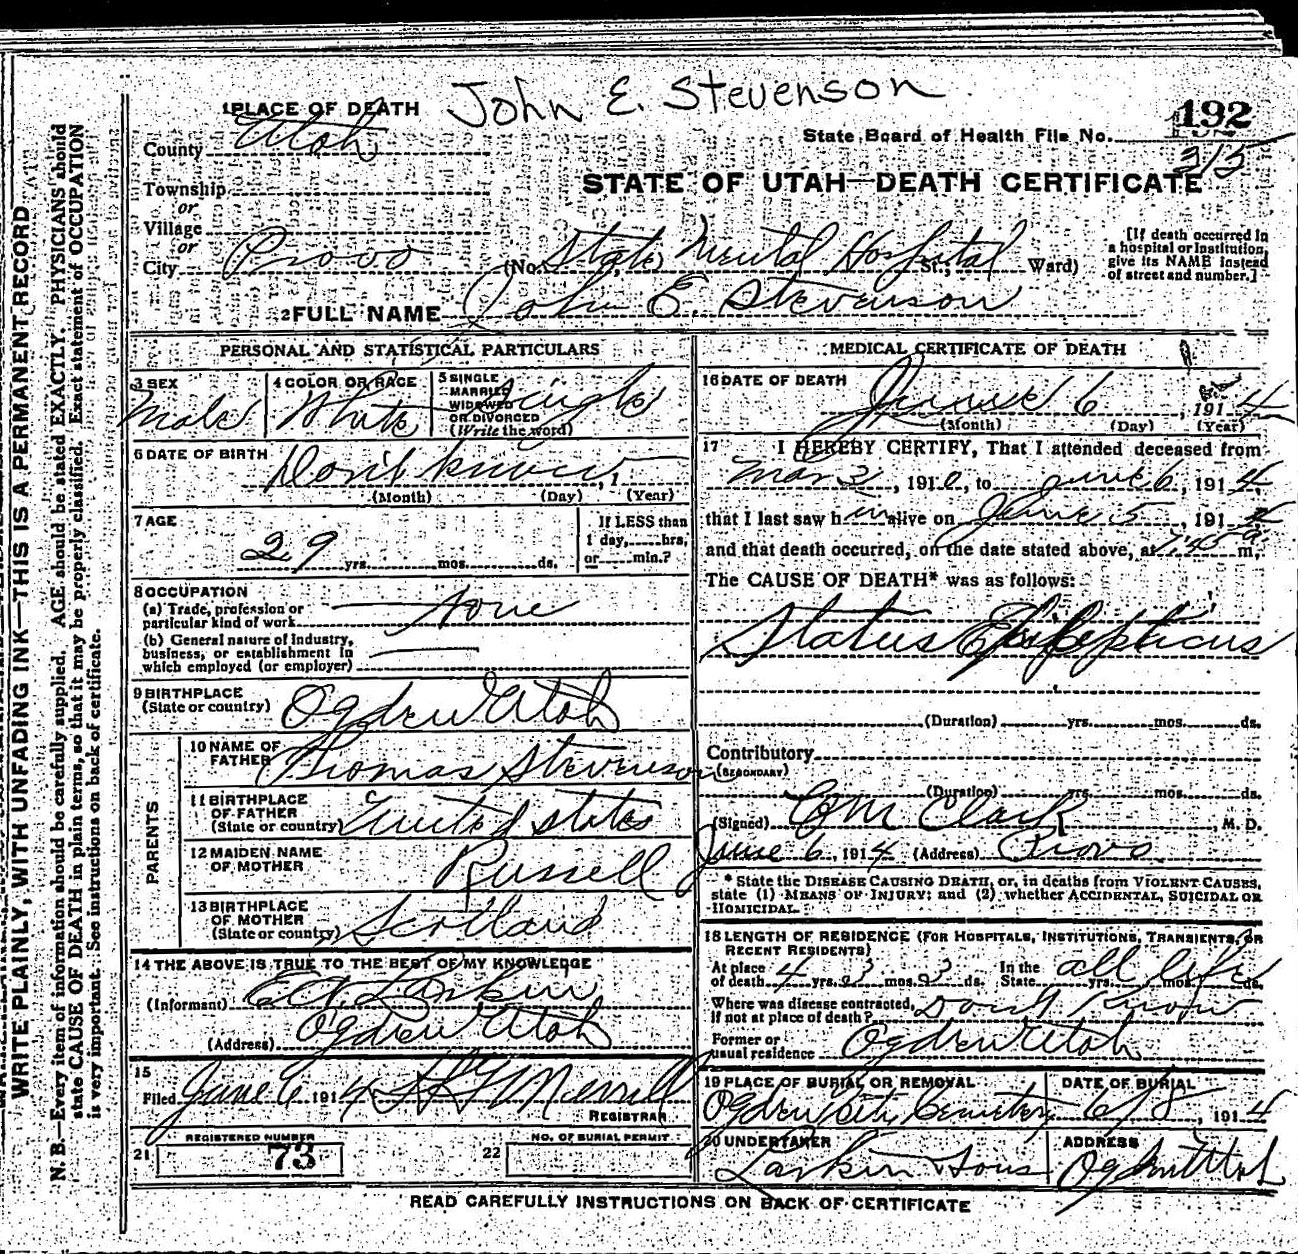 John E. Stevenson
1 PLACE OF DEATH
192
County Utah
State Board of Health File No.
315
Township
or
STATE OF UTAH—DEATH CERTIFICATE
Village
or
City Provo (No. State Mental Hospital St.; Ward)
[If death occurred in
a hospital or institution,
give its NAME instead
of street and number.]
2 FULL NAME John E. Stevenson
PERSONAL AND STATISTICAL PARTICULARS
3 SEX
Male
4 COLOR OR RACE
White
5 SINGLE
MARRIED
WIDOWED
OR DIVORCED
(Write the word)
Single
6 DATE OF BIRTH
Don't know, 1
(Month) (Day) (Year)
7 AGE
29 yrs. mos. ds.
If LESS than
1 day, hrs,
or min.?
8 OCCUPATION
(a) Trade, profession or
particular kind of work None
(b) General nature of industry,
business, or establishment in
which employed (or employer)
9 BIRTHPLACE
(State or country) Ogden Utah
PARENTS
10 NAME OF
FATHER Thomas Stevenson
11 BIRTHPLACE
OF FATHER
(State or country) United States
12 MAIDEN NAME
OF MOTHER Russell
13 BIRTHPLACE
OF MOTHER
(State or country) Scotland
14 THE ABOVE IS TRUE TO THE BEST OF MY KNOWLEDGE
(Informant) Larkin
(Address) Ogden Utah
15
Filed June 6 1914 Merrill
REGISTRAR
REGISTERED NUMBER
21 73
NO. OF BURIAL PERMIT
22
MEDICAL CERTIFICATE OF DEATH
16 DATE OF DEATH
June 6, 1914
(Month) (Day) (Year)
17 I HEREBY CERTIFY, That I attended deceased from
Mar 2, 1910, to June 6, 1914,
that I last saw him alive on June 5, 1914
and that death occurred, on the date stated above, at 7:45 a m.
The CAUSE OF DEATH* was as follows:
Status Epilepticus
(Duration) yrs. mos. ds.
Contributory
(SECONDARY)
(Duration) yrs. mos. ds.
(Signed) Clark, M. D.
June 6, 1914 (Address) Provo
* State the DISEASE CAUSING DEATH, or, in deaths from VIOLENT CAUSES,
state (1) MEANS OF INJURY; and (2) whether ACCIDENTAL, SUICIDAL OR
HOMICIDAL.
18 LENGTH OF RESIDENCE (FOR HOSPITALS, INSTITUTIONS, TRANSIENTS, OR
RECENT RESIDENTS)
At place
of death 4 yrs. 3 mos. 3 ds.
In the
State all life yrs. mos. ds.
Where was disease contracted,
if not at place of death? Don't Know
Former or
usual residence Ogden Utah
19 PLACE OF BURIAL OR REMOVAL
Ogden City Cemetery
DATE OF BURIAL
6/8, 1914
20 UNDERTAKER
Larkin & Sons
ADDRESS
Ogden Utah
READ CAREFULLY INSTRUCTIONS ON BACK OF CERTIFICATE
WRITE PLAINLY, WITH UNFADING INK—THIS IS A PERMANENT RECORD
N. B.—Every item of information should be carefully supplied. AGE should be stated EXACTLY. PHYSICIANS should
state CAUSE OF DEATH in plain terms, so that it may be properly classified. Exact statement of OCCUPATION
is very important. See instructions on back of certificate.